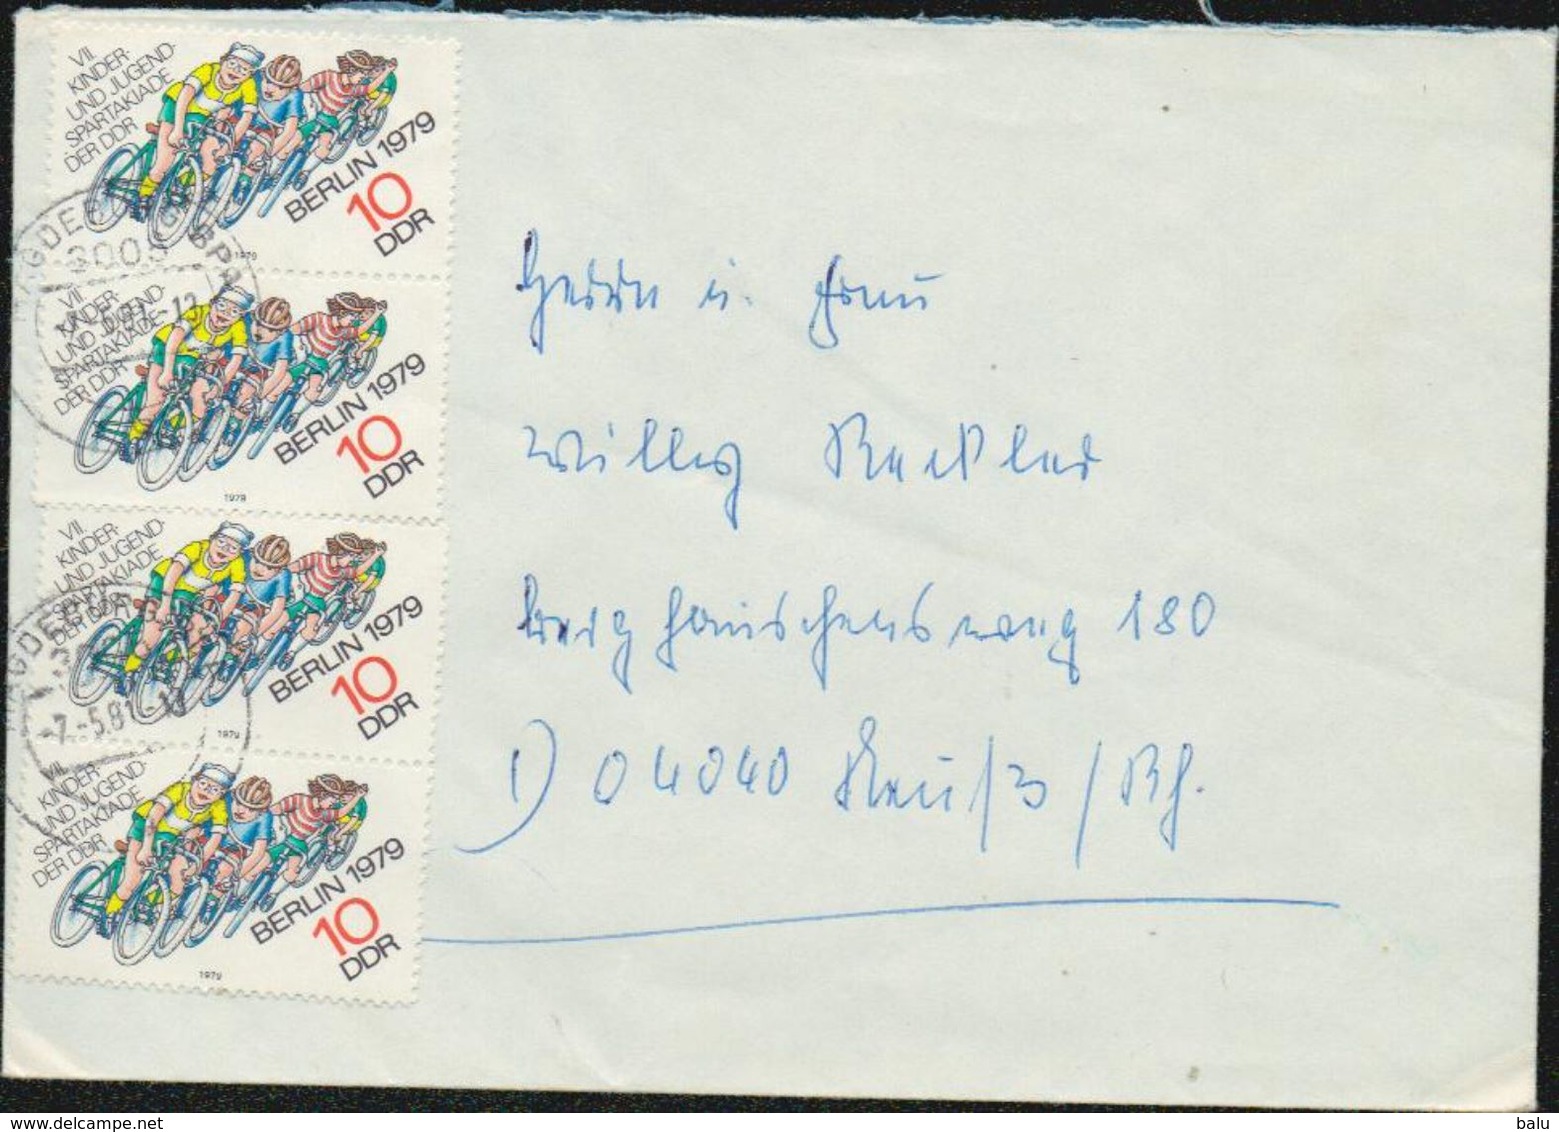 VII.
KINDER-
UND JUGEND-
SPARTAKIADE
DER DDR
BERLIN 1979
10
DDR
1979
VII.
KINDER-
UND JUGEND-
SPARTAKIADE
DER DDR
BERLIN 1979
10
DDR
1979
VII.
KINDER-
UND JUGEND-
SPARTAKIADE
DER DDR
BERLIN 1979
10
DDR
1979
-7.-5.81
VII.
KINDER-
UND JUGEND-
SPARTAKIADE
DER DDR
BERLIN 1979
10
DDR
1979
Herrn u. Frau
Willy
Berghäuschensweg 180
D 04040 Neuß / Rh.
balu